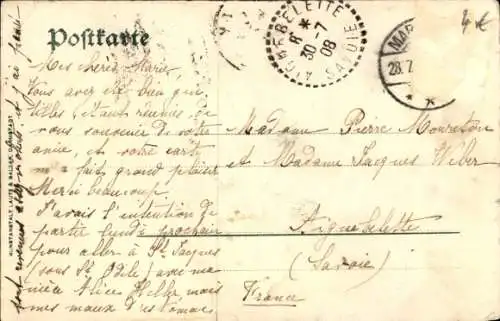 Postkarte
AIGUEBELETTE
8 * 30 -7 08
SAVOIE
MAR
28.7.
4€
Mes chères Marie,
Vous avez été bien gen
tilles étant réunies, de
vous souvenir de votre
amie, et votre carte
m'a fait grand plaisir
Merci beaucoup.
J'avais l'intention de
partir lundi prochain
pour aller à St Jacques
(sous Ste Odile) avec ma
nièce Alice Heller, mais
mes maux d'estomac
Madame Pierre
et Madame Jacques Weber
Aiguebelette
(Savoie)
France
KUNSTANSTALT LAUTZ & BALZAR, DARMSTADT
sont revenus et j'ai